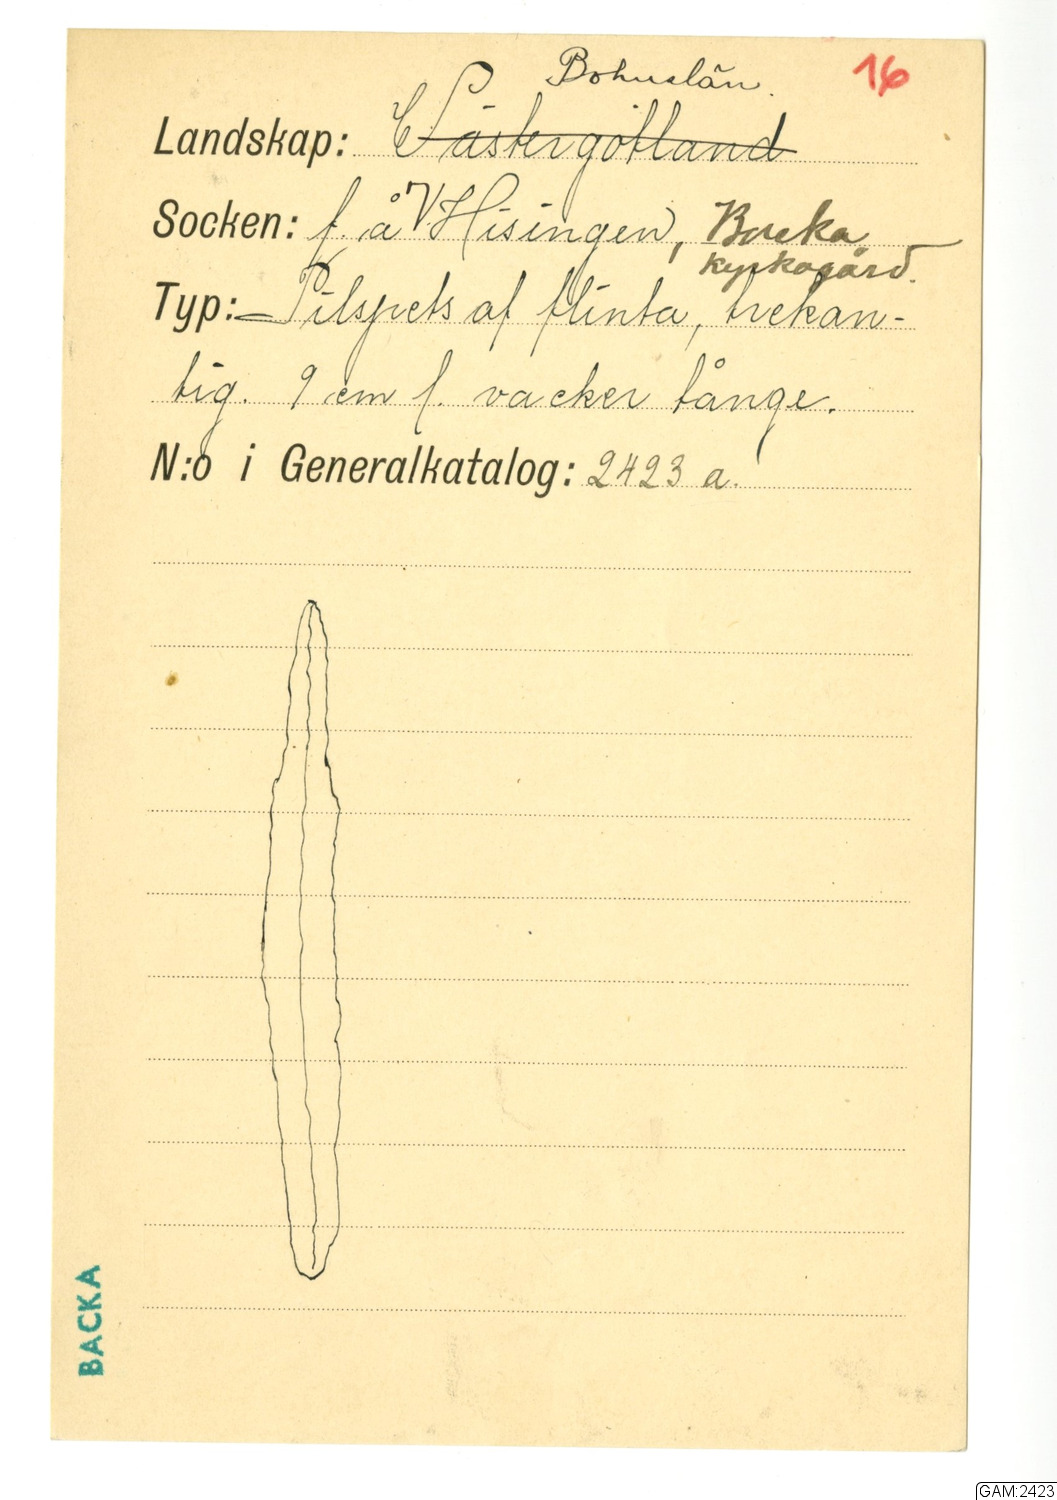 Bohuslän. 16
Landskap: Västergötland
Socken: f. å V Hisingen, Backa
kyrkogård.
Typ: Pilspets af flinta, trekan-
tig. 9 cm l. vacker tånge.
N:o i Generalkatalog: 2423 a.
BACKA
GAM:2423